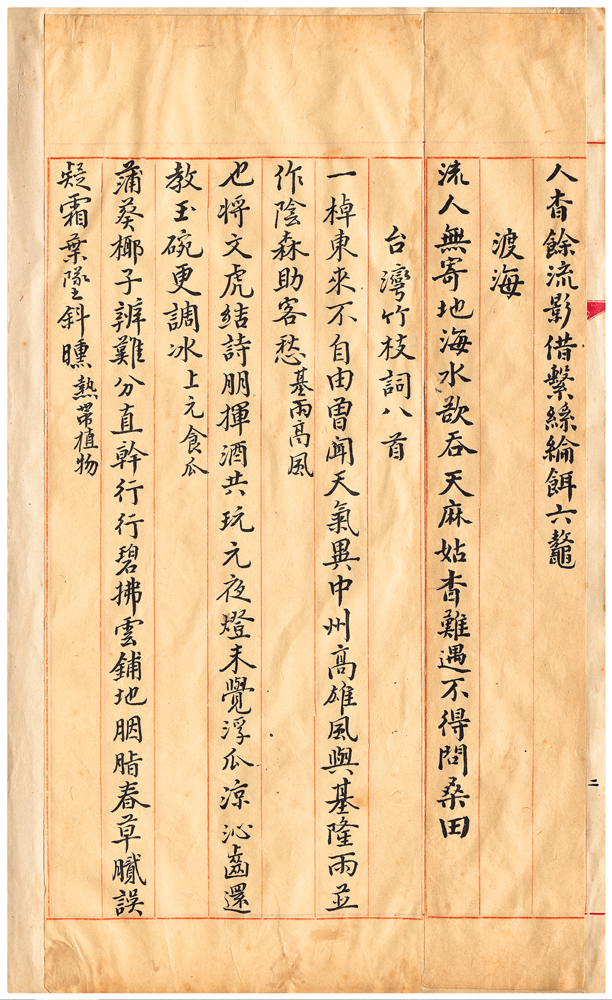 人杳餘流影借繫絲綸餌六鼇
渡海
流人無寄地海水欲吞天麻姑杳難遇不得問桑田
台灣竹枝詞八首
一棹東來不自由曾聞天氣異中州高雄風與基隆雨並
作陰森助客愁基雨高風
也將文虎結詩朋揮酒共玩元夜燈未覺浮瓜涼沁齒還
教玉碗更調冰上元食瓜
蒲葵椰子辨難分直幹行行碧拂雲鋪地胭脂春草膩誤
疑霜葉墜斜曛熱帶植物
二